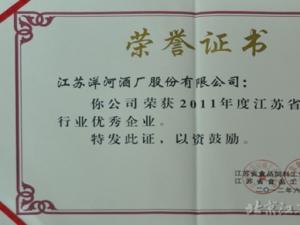 荣誉证书
江苏洋河酒厂股份有限公司：
你公司荣获2011年度江苏省
行业优秀企业。
特发此证，以资鼓励。
江苏省食品
江苏省食品工
二〇一二年六